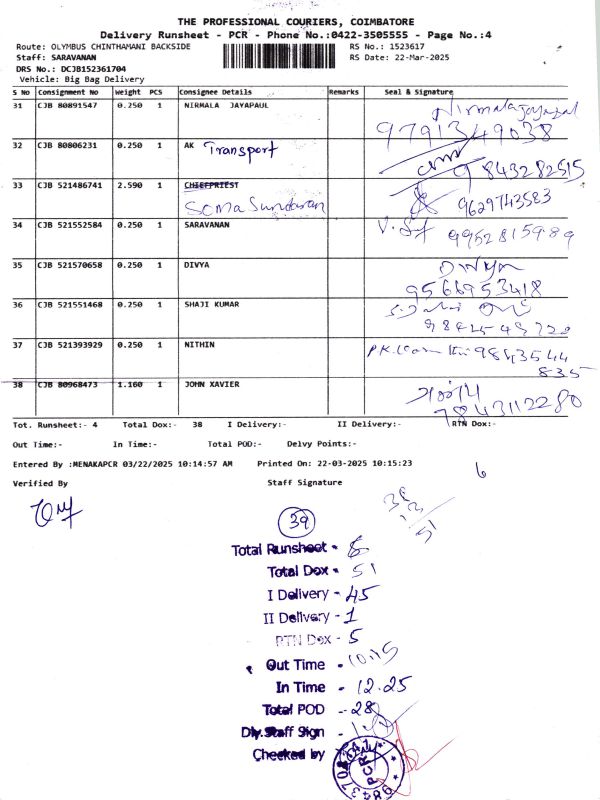 THE PROFESSIONAL COURIERS, COIMBATORE
Delivery Runsheet - PCR - Phone No.:0422-3505555 - Page No.:4
Route: OLYMBUS CHINTHAMANI BACKSIDE RS No.: 1523617
Staff: SARAVANAN RS Date: 22-Mar-2025
DRS No.: DCJB152361704
Vehicle: Big Bag Delivery
S No Consignment No Weight PCS Consignee Details Remarks Seal & Signature
31 CJB 80891547 0.250 1 NIRMALA JAYAPAUL Nirmala Jayapaul
9791349038
32 CJB 80806231 0.250 1 AK Transport
9843282515
33 CJB 521486741 2.590 1 CHIEFPRIEST
Soma Sundaran 9629743583
34 CJB 521552584 0.250 1 SARAVANAN 9952815989
35 CJB 521570658 0.250 1 DIVYA Divya
9566953418
36 CJB 521551468 0.250 1 SHAJI KUMAR
37 CJB 521393929 0.250 1 NITHIN 9843544
835
38 CJB 80968473 1.160 1 JOHN XAVIER
7843112280
Tot. Runsheet:- 4 Total Dox:- 38 I Delivery:- II Delivery:- RTN Dox:-
Out Time:- In Time:- Total POD:- Delvy Points:-
Entered By :MENAKAPCR 03/22/2025 10:14:57 AM Printed On: 22-03-2025 10:15:23
6
Verified By Staff Signature
38
13
51
39
Total Runsheet - 8
Total Dox - 51
I Delivery - 45
II Delivery - 1
RTN Dox - 5
Out Time - 10.15
In Time - 12.25
Total POD - 28
Dly.Staff Sign -
Checked by
PCR